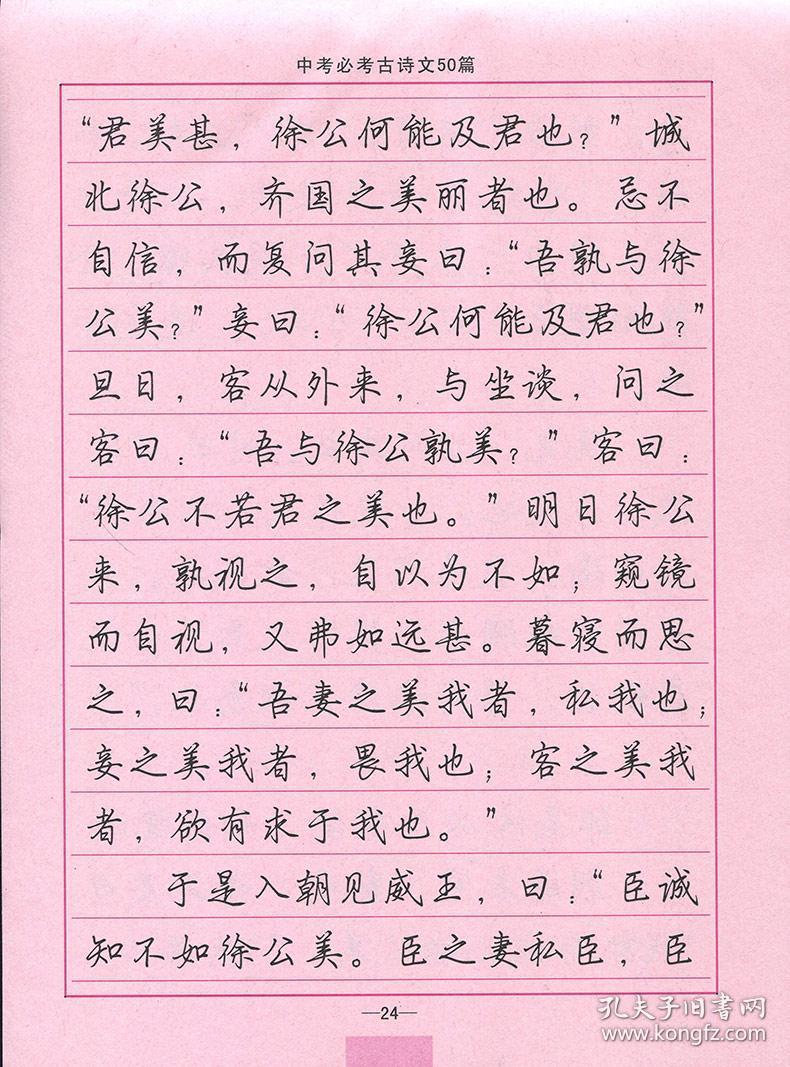 中考必考古诗文50篇
“君美甚，徐公何能及君也？”城
北徐公，齐国之美丽者也。忌不
自信，而复问其妾曰：“吾孰与徐
公美？”妾曰：“徐公何能及君也？”
旦日，客从外来，与坐谈，问之
客曰：“吾与徐公孰美？”客曰：
“徐公不若君之美也。”明日徐公
来，孰视之，自以为不如；窥镜
而自视，又弗如远甚。暮寝而思
之，曰：“吾妻之美我者，私我也；
妾之美我者，畏我也；客之美我
者，欲有求于我也。”
于是入朝见威王，曰：“臣诚
知不如徐公美。臣之妻私臣，臣
—24—
孔夫子旧书网
www.kongfz.com